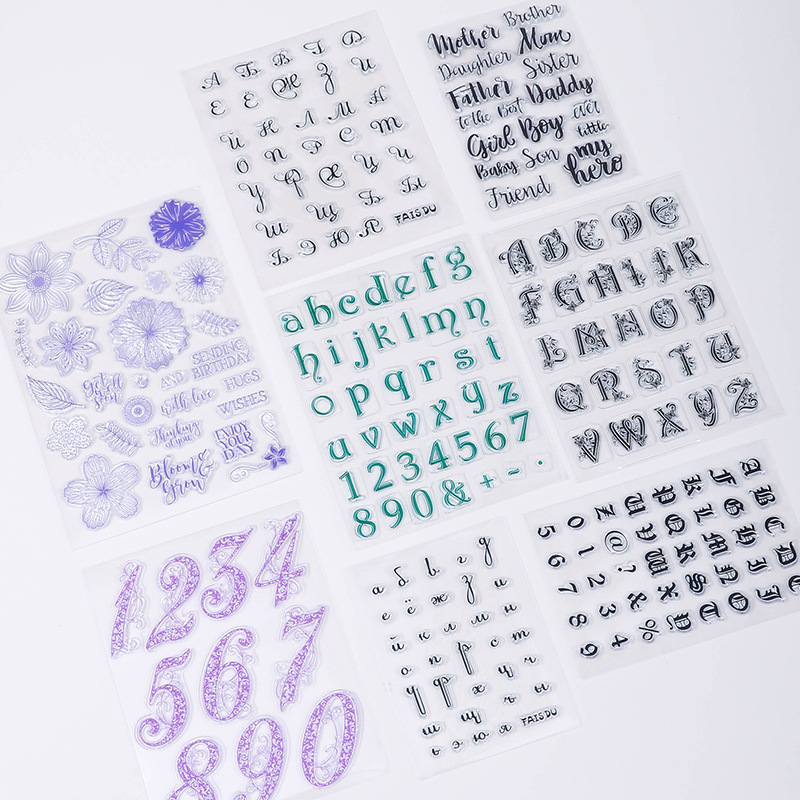 А Б В Г Д
Е Ё Ж З И
Й К Л М Н
О П Р С Т
У Ф Х Ц Ч
Ш Щ Ъ Ы
Ь Э Ю Я FAISDU
Brother
Mother Mom
Daughter Sister
Father Daddy
to the Best ever
Girl Boy little
Baby Son my
hero
Friend
Get well
Soon
AND
SENDING
BIRTHDAY
HUGS
with love
WISHES
Thinking
of you
ENJOY
YOUR
DAY
Bloom &
Grow
a b c d e f g
h i j k l m n
o p q r s t
u v w x y z
1 2 3 4 5 6 7
8 9 0 & + ~ .
A B C D E
F G H I J K
L M N O P
Q R S T U
V W X Y Z
1 2 3 4
5 6 7
8 9 0
а б в г д
е ё ж з и
й к л м н
о п р с т
у ф х ц ч
ш щ ъ ы
ь э ю я FAISDU
A B C D E
F G H I J
K L M N O
P Q R S T
U V W X Y
Z @ ? & %
0 1 2 3 4
5 6 7 8 9